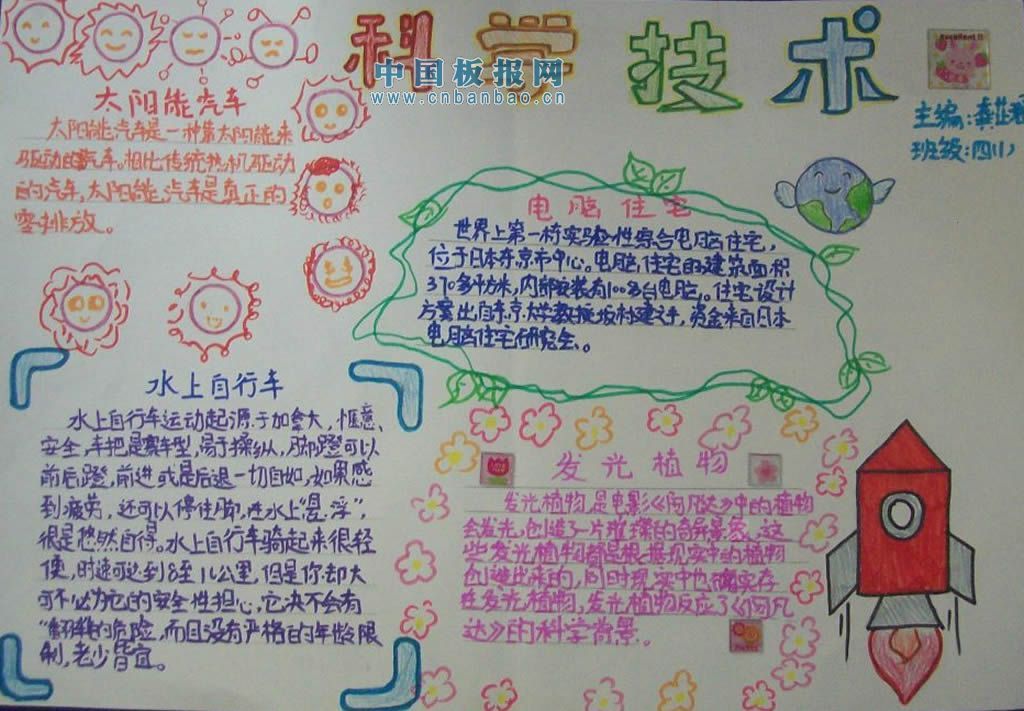 科学技术
中国板报网
www.cnbanbao.cn
excellent!!
主编:龚芷
班级:四(1)
太阳能汽车
太阳能汽车是一种靠太阳能来
驱动的汽车。相比传统热机驱动
的汽车,太阳能,汽车是真正的
零排放。
电脑住宅
世界上第一桥实验性综合电脑住宅,
位于日本东京市中心。电脑住宅的建筑面积
370多平方米,内部安装有100多台电脑。住宅设计
方案出自东京大学教授坂村建之手,资金来自日本
电脑住宅研究会。
水上自行车
水上自行车运动起源于加拿大,惬意、
安全,车把是赛车型,易于操纵,脚蹬可以
前后蹬,前进或是后退一切自如,如果感
到疲劳,还可以停住脚,在水上“漫浮”,
很是悠然自得。水上自行车骑起来很轻
便,时速可达到8至10公里,但是你却大
可不必为它的安全性担心,它决不会有
“翻车的危险,而且没有严格的年龄限
制,老少皆宜。
发光植物
发光植物是电影《阿凡达》中的植物
会发光,创造了一片璀璨的奇异景象。这
些发光植物都是根据现实中的植物
创造出来的,同时现实中也确实存
在发光植物,发光植物反应了《阿凡
达》的科学背景。